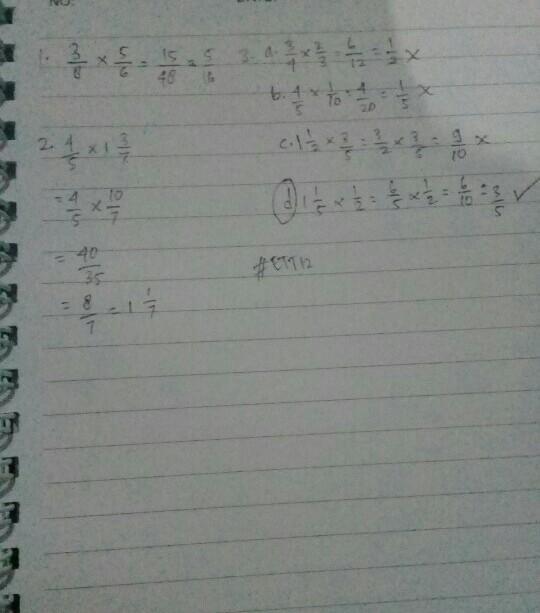 NO:
1. 3/8 × 5/6 = 15/48 = 5/16
2. 4/5 × 1 3/7
= 4/5 × 10/7
= 40/35
= 8/7 = 1 1/7
3. a. 3/4 × 2/3 = 6/12 = 1/2 ×
b. 4/5 × 1/10 = 4/20 = 1/5 ×
c. 1 1/2 × 3/5 = 3/2 × 3/5 = 9/10 ×
d 1 1/5 × 1/2 = 6/5 × 1/2 = 6/10 = 3/5 ✓